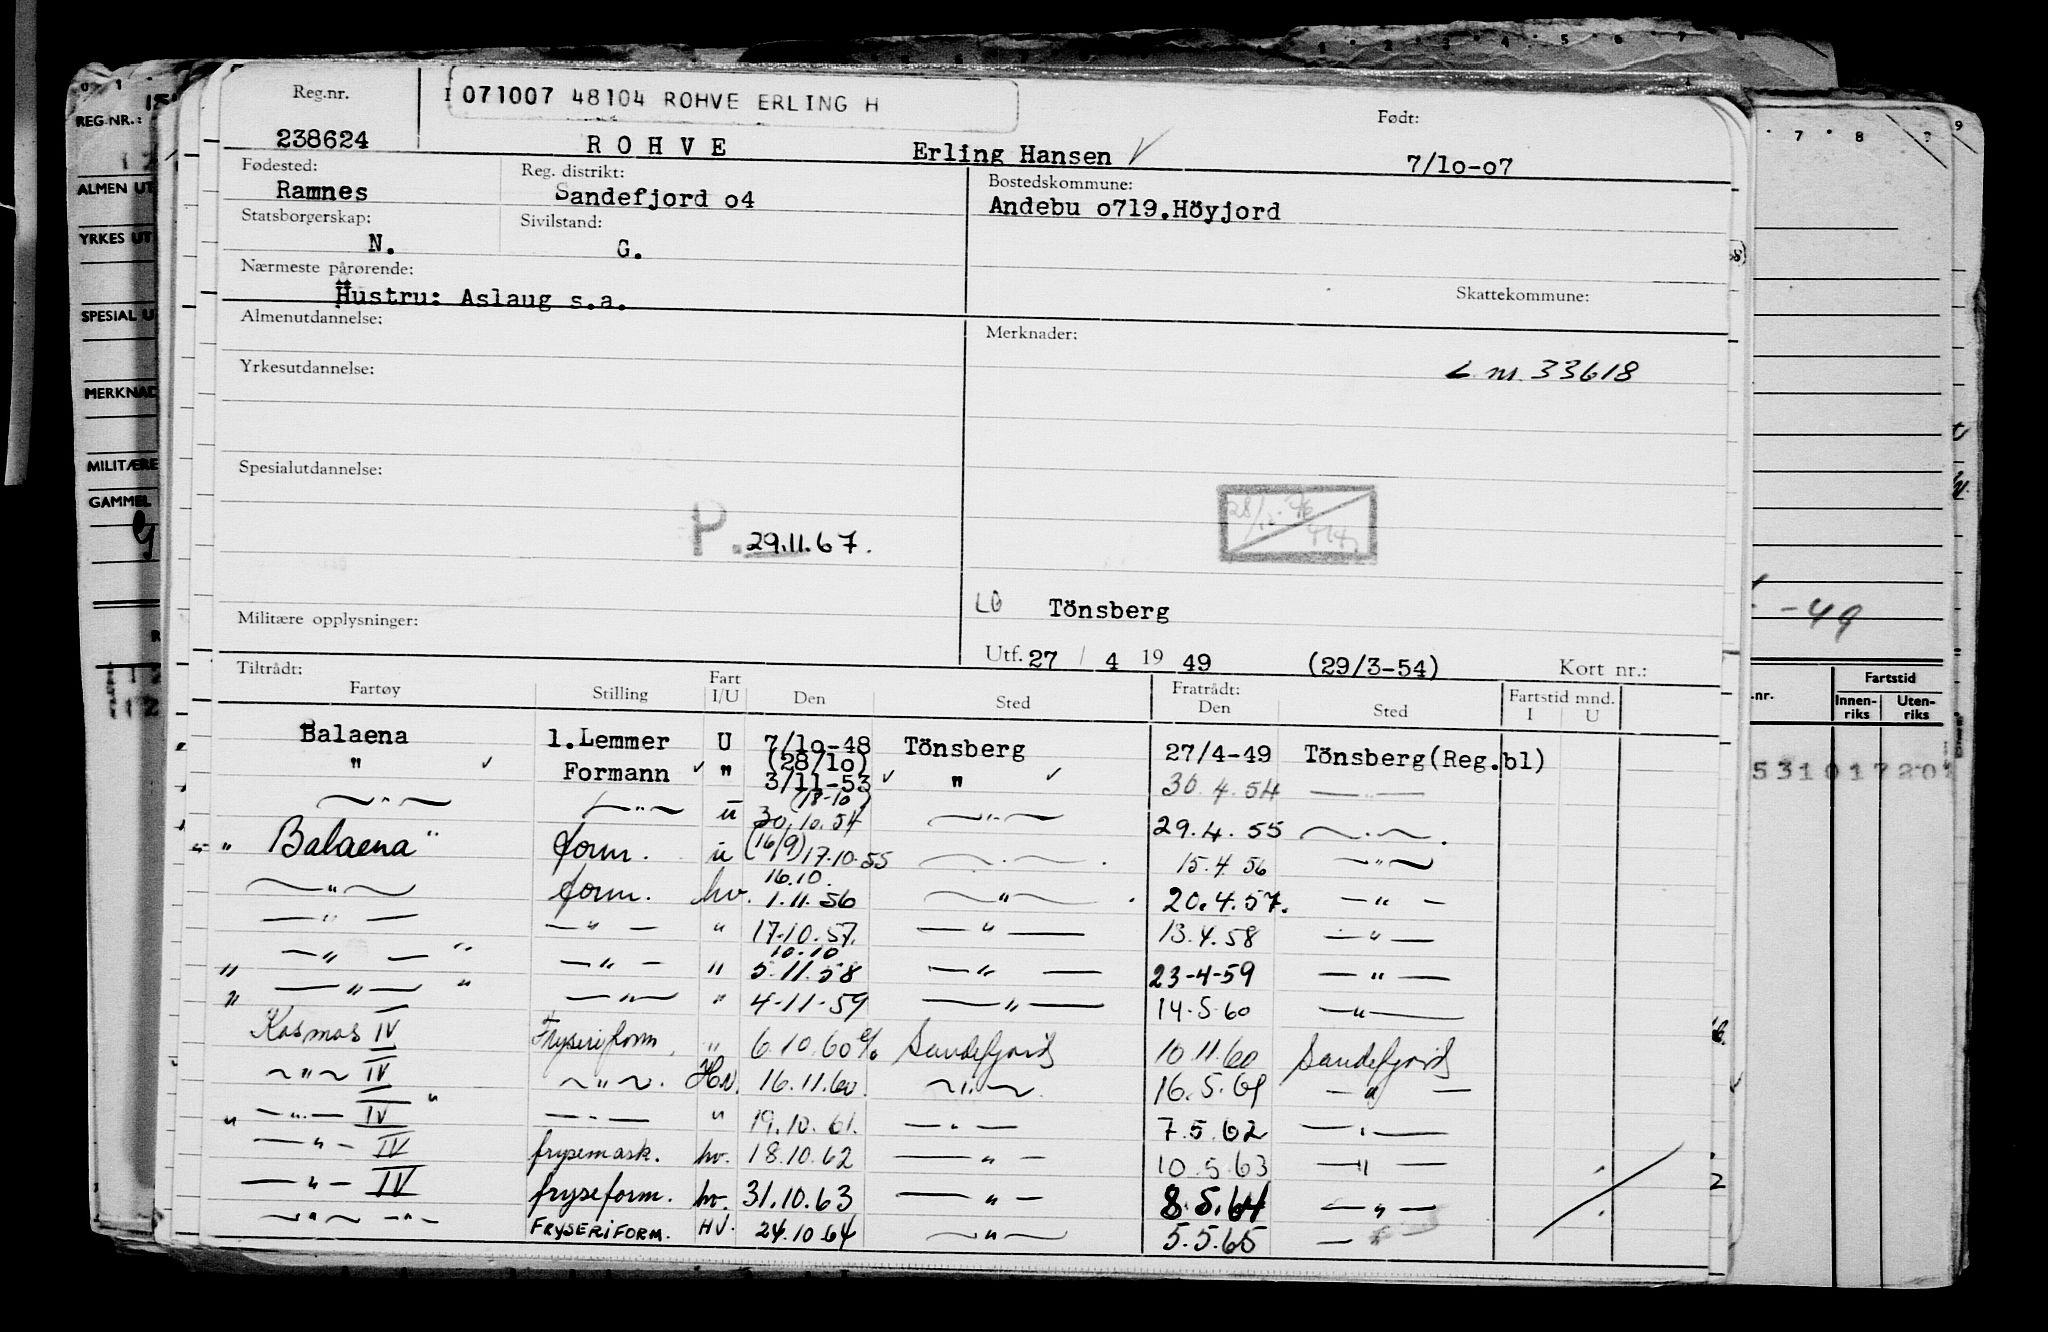 Reg.nr.
071007 48104 ROHVE ERLING H
Født:
238624 ROHVE Erling Hansen 7/lo-o7
Fødested: Reg. distrikt: Bostedskommune:
Ramnes Sandefjord o4 Andebu o719.Höyjord
Statsborgerskap: Sivilstand:
N. G.
Nærmeste pårørende:
Hustru: Aslaug s.a. Skattekommune:
Almenutdannelse: Merknader:
Yrkesutdannelse: L.nr. 33618
Spesialutdannelse:
P. 29.11.67.
LB Tönsberg
Militære opplysninger:
Utf. 27 / 4 19 49 (29/3-54) Kort nr.:
Tiltrådt: Fratrådt: Fartstid mnd.
Fartøy Stilling Fart I/U Den Sted Den Sted I U
Balaena 1.Lemmer U 7/lo-48 Tönsberg 27/4-49 Tönsberg(Reg.bl)
" Formann " (28/lo) 3/11-53 " 30.4.54 — " —
— " — — " — u (18-10) 30.10.54 — " — 29.4.55 — " —
" Balaena " form. u (16/9) 17.10.55 — " — 15.4.56 — " —
— " — form. hv. 16.10. 1.11.56 — " — 20.4.57. — " —
— " — — " — " 17.10.57. — " — 13.4.58 — " —
— " — " — " — " 10.10 5.11.58 — " — 23-4-59 — " —
" — " — " — " — " 4-11-59 — " — 14.5.60 — " —
Kosmos IV Fryseriform. " 6.10.60 Sandefjord 10.11.60 Sandefjord
— " — IV — " — Hv. 16.11.60. — " — 16.5.61 — " —
" — " — IV " — " — " 19.10.61. — " — 7.5.62 — " —
— " — IV frysemask. hv. 18.10.62 — " — 10.5.63 — " —
— " — IV fryseform. hv. 31.10.63 — " — 8.5.64 — " —
— " — — " — FRYSERIFORM. HV. 24.10.64 — " — 5.5.65 — " —
REG.NR.:
ALMEN UT
YRKES UT
SPESIAL U
MERKNAD
MILITÆRE
GAMMEL
-49
.nr. Fartstid
Innen-riks Uten-riks